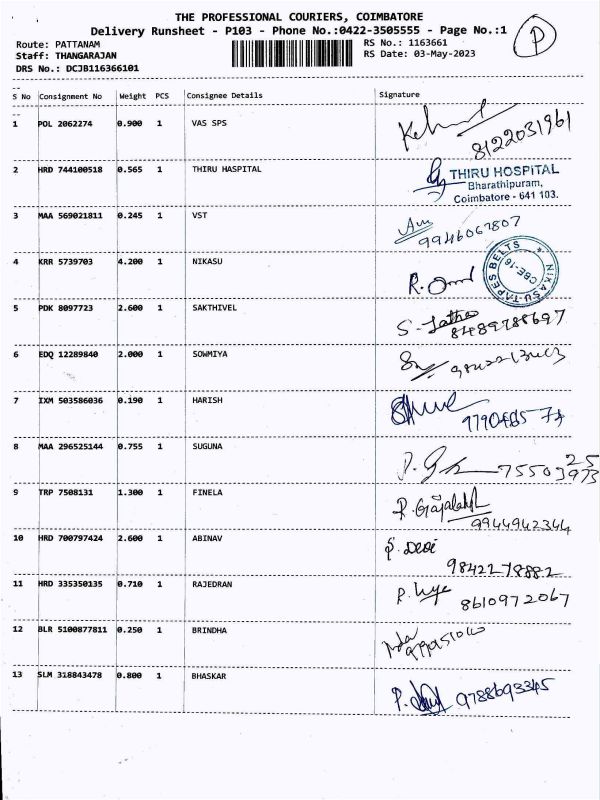 THE PROFESSIONAL COURIERS, COIMBATORE
Delivery Runsheet - P103 - Phone No.:0422-3505555 - Page No.:1
P
Route: PATTANAM
RS No.: 1163661
Staff: THANGARAJAN
RS Date: 03-May-2023
DRS No.: DCJB116366101
S No Consignment No Weight PCS Consignee Details Signature
1 POL 2062274 0.900 1 VAS SPS
8122031961
2 HRD 744100518 0.565 1 THIRU HASPITAL THIRU HOSPITAL
Bharathipuram,
Coimbatore - 641 103.
3 MAA 569021811 0.245 1 VST
9946067807
4 KRR 5739703 4.200 1 NIKASU
NIKASU TAPES BELTS
CBE-16
5 PDK 8097723 2.600 1 SAKTHIVEL S- Latha
8489788697
6 EDQ 12289840 2.000 1 SOWMIYA
7 IXM 503586036 0.190 1 HARISH
8 MAA 296525144 0.755 1 SUGUNA
9 TRP 7508131 1.300 1 FINELA
9944942344
10 HRD 700797424 2.600 1 ABINAV S. Devi
9842278882
11 HRD 335350135 0.710 1 RAJEDRAN
8610972067
12 BLR 5100877811 0.250 1 BRINDHA
13 SLM 318843478 0.800 1 BHASKAR
9788693345